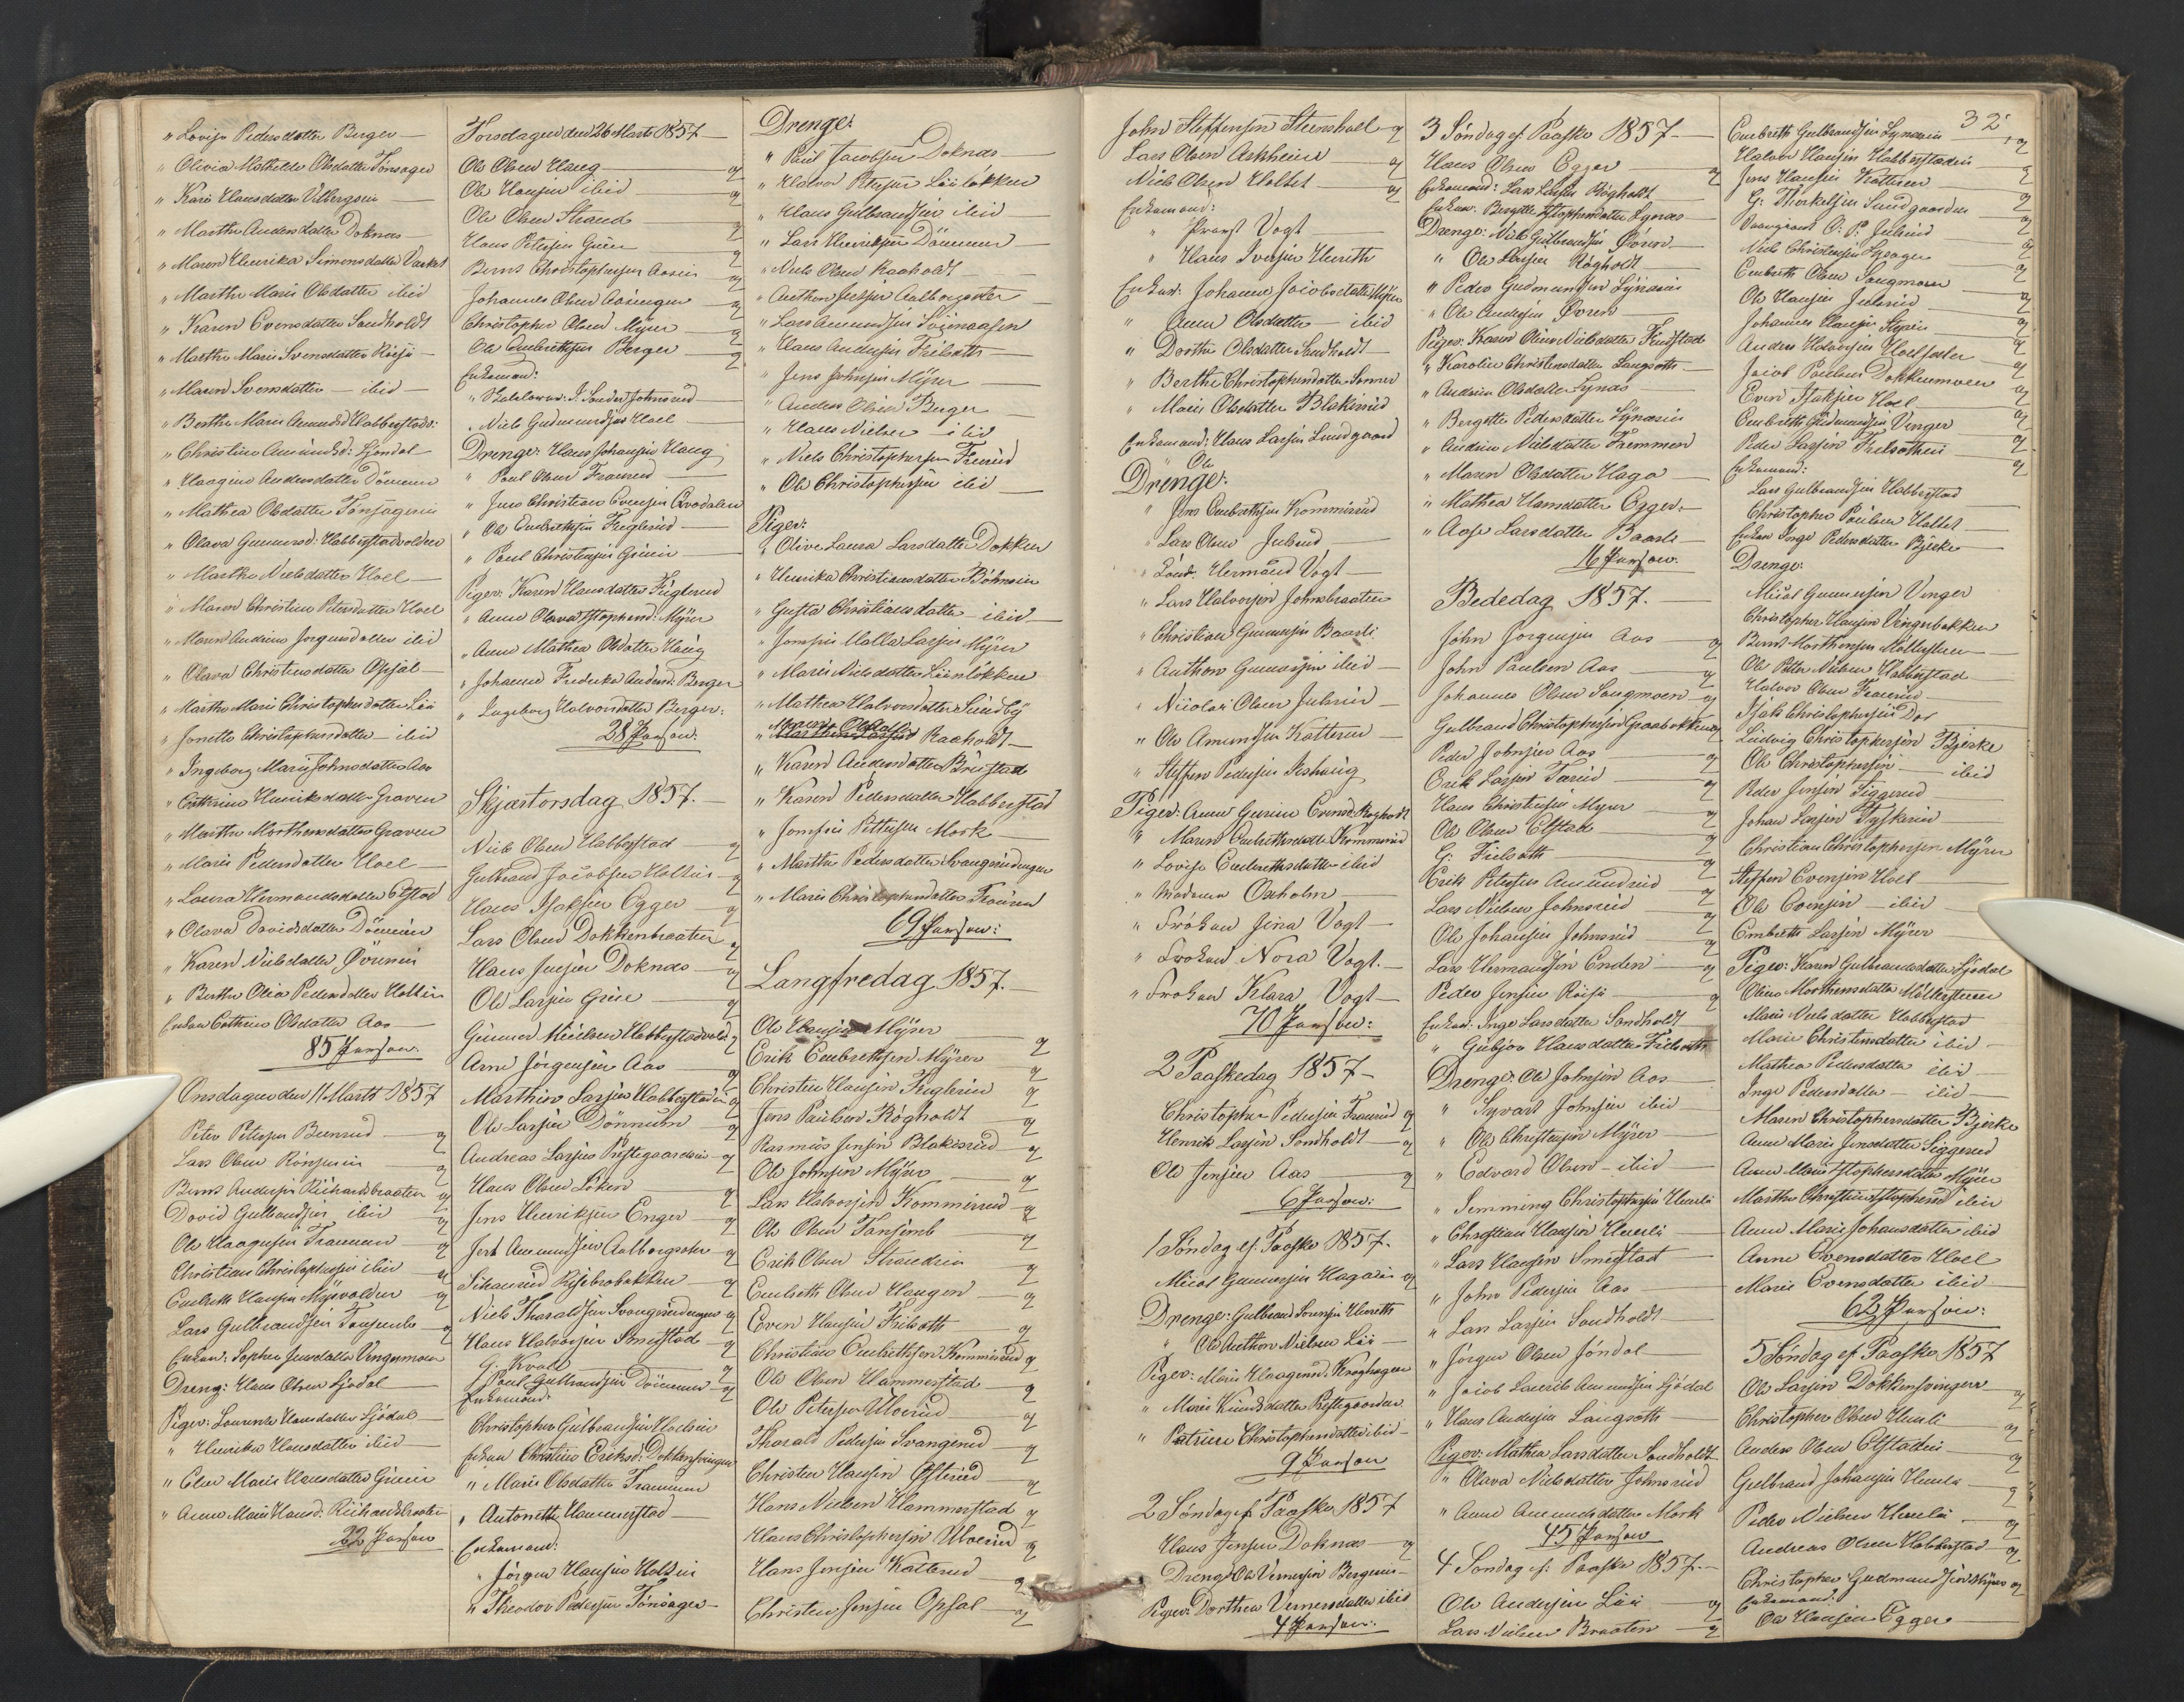 " Lovise Pedersdatter Berger —
" Olivia Mathilde Olsdatter Tönsager
" Kari Hansdatter Vilbergsin —
" Marthe Andersdatter Doknæs —
" Maren Henrika Simensdatter
" Marthe Marie Olsdatter ibid
" Karen Evensdatter Sandholdt
" Marthe Marie Svensdatter Röisi —
" Maren Svensdatter — ibid —
" Berthe Marie Amunds: Habberstad:
" Christine Amunds: Sjøndal —
" Haagine Andersdatter Dönnum
" Mathea Olsdatter Tönsagerin
" Olava Gunnersd: Habberstadvolden
" Marthe Nielsdatter Hoel —
" Maren Christine Petersdatter Hoel
" Maren Andrine Jörgensdatter ibid
" Olava Christensdatter Opsal —
" Marthe Marie Christophersdatter Lii
" Jonette Christophersdatter — ibid
" Ingeborg Marie Johnsdatter Aas
" Cathrine Henriksdatter Graven
" Marthe Morthensdatter Graven
" Marie Pedersdatter Hoel —
" Laura Hermandsdatter Elstad
" Olava Davidsdatter Dönnum
" Karen Nielsdatter Øvrerin
" Berthe Olia Pedersdatter Holtin
Enken Cathrine Olsdatter Aas —
85 Personer.
Onsdagen den 11 Marts 1857
Peter Petersen Beenrud — g
Lars Olsen — g
Bernt Andersen Richardsbraaten g
David Gulbrandsen ibid — g
Ole Haagensen Traneren — g
Christian Christophersen ibid — g
Embreth Hansen Myrvolden — g
Lars Gulbrandsen — g
Enken: Sophie Jensdatter Vingermoen
Dreng: Hans Olsen Sjödal —
Piger: Laurense Hansdatter Sjödal —
" Henrika Hansdatter ibid —
" Elen Marie Hansdatter Grinin
" Anne Marie Hansd: Richardsbraaten
22 Personer
Torsdagen den 26 Marts 1857 —
Ole Olsen Haug — g
Ole Hansen ibid — g
Ole Olsen Strand — g
Hans Petersen Grinn — g
Bernt Christophersen Aasin — g
Johannes Olsen — g
Christopher Olsen Myrer — g
Ole Embrethsen Berger — g
Enkemænd:
" Skolelærer: J. Sander Johnsrud —
" Niels Gudmundsen Hoel —
Drenge: Hans Johansen Haug
" Paul Olsen Fransrud —
" Jens Christian Evensen Qværdalen
" Ole Embrethsen Fuglerud —
" Paul Christensen Grinin —
Piger: Karen Hansdatter Fuglerud
" Anne Olava Christophersd: Myrer
" Anne Mathea Olsdatter Haug
" Johanne Fredrikke Andersd: Berger
" Ingeborg Halvorsdatter Berger:
28 Personer:
Skjærtorsdag 1857. —
Niels Olsen Habberstad — g
Gulbrand Jacobsen Holtin — g
Hans Isaksen Egger — g
Lars Olsen Dokkenbraaten g
Hans Jensen Doknæs — g
Ole Larsen Grine — g
Gunner Nielsen Habberstadvold: g
Arne Jörgensen Aas — g
Marthin Larsen Habberstadin g
Ole Larsen Dönnum — g
Andreas Larsen Prestegaardein g
Hans Olsen Löken — g
Jens Henriksen Enger — g
Jens Amundsen Aalborgseter g
Schanrud Risebrobakken — g
Niels Tharaldsen Svangrudengen g
Hans Halvorsen Smestad — g
G. Kroll — g
Paul Gulbrandsen Dönnum — g
Enkemænd:
Christopher Gulbrandsen Hoelsin
Enken Christine Eriksd: Dokkensvingen
" Marie Olsdatter Trannum
" Antonette Hammerstad —
Enkemænd:
" Jörgen Hansen Holtin
" Theodor Pedersen Tönsager —
Drenge:
" Paul Jacobsen Doknæs —
" Halvor Petersen Liinlökken
" Hans Gulbrandsen ibid —
" Lars Henriksen Dönnum —
" Niels Olsen Raaholdt —
" Anthon Jensen Aalborgseter —
" Lars Amundsen —
" Hans Andersen Frilseth —
" Jens Johnsen Myrer —
" Anders Olsen Berger —
" Hans Nielsen ibid
" Niels Christophersen Fransrud
" Ole Christophersen ibid —
Piger:
" Olive Laura Larsdatter Dokken
" Henrika Christiansdatter Böhnsin
" Gusta Christiansdatter — ibid —
" Jomfru Malla Larsen Myrer
" Marie Nielsdatter Liinlökken
" Mathea Halvorsdatter Sundby
" Maren Olsdatter Raaholdt —
" Karen Andersdatter Bristad
" Karen Pedersdatter Habberstad
" Jomfru Pettersen Mork —
" Marthe Pedersdatter Svangrudengen
" Marie Christophersdatter Fransrud
69 Personer:
Langfredag 1857. —
Ole Hansen Myrer — g
Erik Embrethsen Myrer — g
Christen Hansen Fuglerud — g
Jens Paulsen Rögholdt — g
Rasmus Jensen Blakisrud — g
Ole Johnsen Myrer — g
Lars Halvorsen Kommisrud — g
Ole Olsen — g
Erik Olsen Strandin — g
Embreth Olsen Haugen — g
Even Hansen Frilseth — g
Christian Embrethsen Kommisrud g
Ole Olsen Hammerstad — g
Ole Petersen Ulverud — g
Tharald Pedersen Svangrud — g
Christen Hansen Östrud — g
Hans Nielsen Hammerstad g
Hans Christophersen Ulverud g
Hans Jensen Katterud — g
Christen Jensen Opsal — g
32
John Steffensen Steenshol g
Lars Olsen Askheim — g
Niels Olsen Holtet — g
Enkemænd:
" Provst Vogt —
" Hans Iversen Henrith
Enker: Johanne Jacobsdatter Myrer
" Anne Olsdatter — ibid —
" Dorthe Olsdatter Sandholdt
" Berthe Christophersdatter Sonner
" Marie Olsdatter Blakisrud
Enkemænd: Hans Larsen Lundgaard
Drenge:
" Jens Embrethsen Kommisrud
" Lars Olsen Julsrud —
" Hermand Vogt —
" Lars Halvorsen Johnsbraaten
" Christian Gunnersen Baarli
" Anthon Gunnersen ibid —
" Nicolai Olsen Julsrud —
" Ole Amundsen Katterud —
" Steffen Pedersen
Piger: Anne Gurine Evensd: Rögholdt
" Maren Embrethsdatter Kommisrud
" Lovise Embrethsdatter ibid
" Madame Oxholm —
" Frøken Jina Vogt —
" Frøken Nora Vogt. —
" Frøken Klara Vogt —
70 Personer:
2 Paaskedag 1857 —
Christopher Pedersen Fransrud g
Henrik Larsen Sandholdt — g
Ole Jensen Aas — g
6 Personer:
1 Søndag ef: Paaske 1857.
Micol Gunnersen Hagain g
Drenge: Gulbrand Iversen Henrith
" Ole Anthon Nielsen Lii —
Piger: Marie Haagensd: Kroghagen
" Marie Knudsdatter Prestegaarden
" Patrine Christophersdatter ibid —
9 Personer
2 Søndag ef Paaske 1857
Hans Jensen Doknæs — g
Dreng: Ole Vernersen Bergerin —
Piger: Dorthea Vernersdatter ibid
4 Personer:
3 Søndag ef: Paaske 1857 —
Hans Olsen Egger — g
Enkemænd: Lars Larsen Rögholdt
Enker: Bergitte Christophersdatter Lynæs —
Drenge: Niels Gulbrandsen Øvren —
" Ole Larsen Rögholdt —
" Peder Gudmundsen Lynæsin
" Ole Andersen Øvren —
Piger: Karen Oline Nielsdatter Finstad
" Karoline Christensdatter Langseth —
" Andrine Olsdatter Lynæs —
" Bergitte Pedersdatter Lynæsin
" Andrine Nielsdatter Tremmen
" Maren Olsdatter Haga —
" Mathea Hansdatter Egger: —
" Aase Larsdatter Baarli —
16 Personer.
Bededag 1857.
John Jörgensen Aas — g
John Paulsen Aas — g
Johannes Olsen Saugmoen g
Gulbrand Christophersen Graabakken g
Peder Johnsen Aas — g
Erik Larsen — g
Hans Christensen Myrer — g
Ole Olsen Elstad — g
G: Frilseth — g
Erik Petersen Amundrud — g
Lars Nielsen Johnsrud — g
Ole Johansen Johnsrud — g
Lars Hermandsen Enden — g
Peder Jensen Röisi — g
Enker: Inger Larsdatter Sandholdt
" Gubjør Hansdatter Frilseth
Drenge: Ole Johnsen Aas —
" Syvart Johnsen ibid —
" Ole Christensen Myrer —
" Edvard Olsen — ibid —
" Semming Christophersen Henli
" Christian Hansen Henli —
" Lars Hansen Smestad —
" John Pedersen Aas —
" Lars Larsen Sandholdt
" Jörgen Olsen Jöndal —
" Jacob Laurits Amundsen Sjödal
" Hans Andersen Langseth —
Piger: Mathea Larsdatter Sandholdt
" Olava Nielsdatter Johnsrud
" Anne Amundsdatter Mork
45 Personer
4 Søndag ef: Paaske 1857. —
Ole Andersen Lii — g
Lars Nielsen Braaten — g
Embreth Gulbrandsen Lynæsin — g
Halvor Hansen Habberstadin — g
Jens Hansen Katterud — g
G: Thorkelsen Sundgaarden — g
O: P: Julsrud — g
Niels Christensen — g
Embreth Olsen Saugmoen — g
Ole Hansen Julsrud — g
Johannes Hansen Styrin — g
Anders Halvorsen Hoelseter — g
Jacob Paulsen Dokkenmoen g
Even Isaksen Hoel — g
Embreth Gudmundsen Vinger g
Peder Larsen — g
Enkemænd:
Lars Gulbrandsen Habberstad
Christopher Paulsen Holtet —
Enken Inge Pedersdatter Bjerke
Drenge:
Micol Gunnersen Vinger
Christopher Hansen Vingerbakken
Bernt Morthensen Mollerstuen —
Ole Petter Nielsen Habberstad —
Halvor Olsen Fransrud —
Isak Christophersen Dal
Ludvig Christophersen Bjerke
Ole Christophersen — ibid
Peder Jensen Siggerud —
Johan Larsen Tyskerin
Christian Christophersen Myrer
Steffen Evensen Hoel
Ole Evensen — ibid —
Embreth Larsen Myrer —
Piger: Karen Gulbrandsdatter Sjødal
Oline Morthensdatter Mollerstuen
Marie Nielsdatter Habberstad
Marie Christensdatter ibid —
Mathea Pedersdatter ibid —
Inge Pedersdatter — ibid —
Maren Christophersdatter Bjerke
Anne Marie Jensdatter Siggerud
Anne Marie Christophersdatter Myrer
Marthe Christine Christophersd ibid
Anne Marie Johansdatter ibid
Anne Evensdatter Hoel
Marie Evensdatter ibid —
62 Personer:
5 Søndag ef Paaske 1857
Ole Larsen Dokkensvingen g
Christopher Olsen Henli — g
Anders Olsen Elstadin — g
Gulbrand Johansen Henli — g
Peder Nielsen Henli — g
Andreas Olsen Habberstad — g
Christopher Gudmundsen Myrer g
Enkemænd:
Ole Hansen Egger —